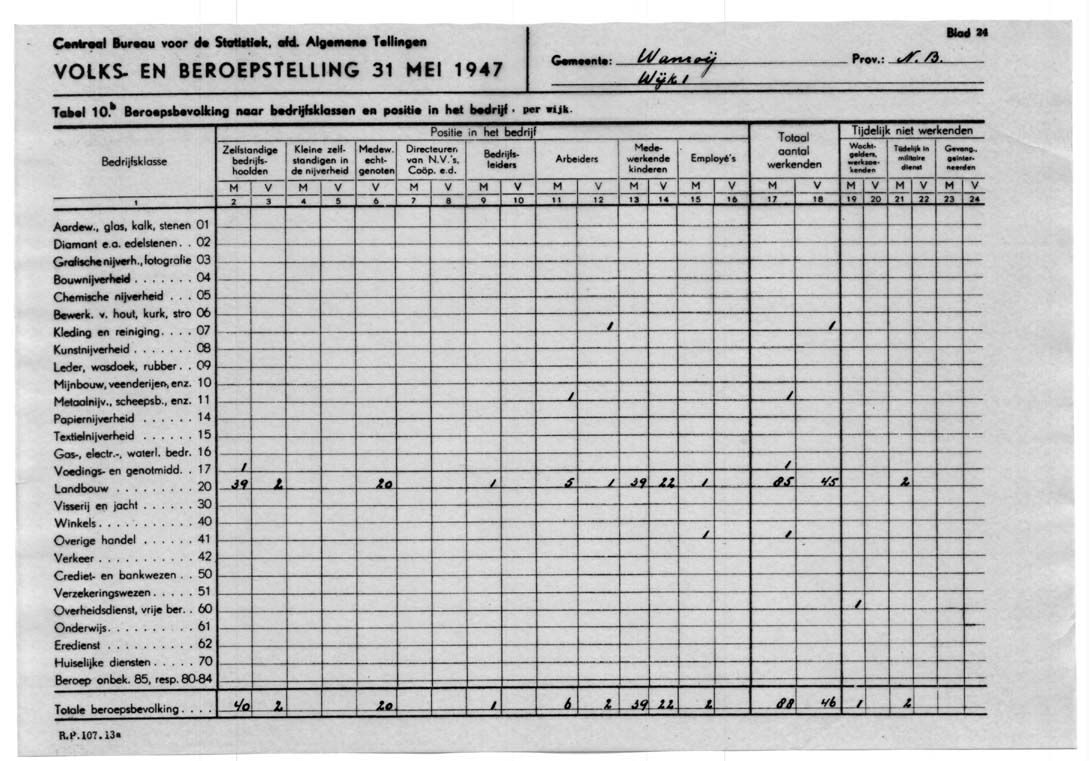 Centraal Bureau voor de Statistiek, afd. Algemene Tellingen
Blad 24
VOLKS- EN BEROEPSTELLING 31 MEI 1947
Gemeente: Wanroij
Prov.: N.B.
Wijk 1
Tabel 10.b Beroepsbevolking naar bedrijfsklassen en positie in het bedrijf, per wijk.
Bedrijfsklasse
Positie in het bedrijf
Totaal aantal werkenden
Tijdelijk niet werkenden
Zelfstandige bedrijfs-hoolden
Kleine zelf-standigen in de nijverheid
Medew. echt-genoten
Directeuren van N.V.'s, Coöp. e.d.
Bedrijfs-leiders
Arbeiders
Mede-werkende kinderen
Employé's
Wacht-gelders, werkzoe-kenden
Tijdelijk in militaire dienst
Gevang., geïnter-neerden
M V M V V M V M V M V M V M V M V M V M V M V
1 2 3 4 5 6 7 8 9 10 11 12 13 14 15 16 17 18 19 20 21 22 23 24
Aardew., glas, kalk, stenen 01
Diamant e.a. edelstenen. . 02
Grafische nijverh., fotografie 03
Bouwnijverheid . . . . . . . 04
Chemische nijverheid . . . 05
Bewerk. v. hout, kurk, stro 06
Kleding en reiniging. . . . 07 1 1
Kunstnijverheid . . . . . . . 08
Leder, wasdoek, rubber. . 09
Mijnbouw, veenderijen, enz. 10
Metaalnijv., scheepsb., enz. 11 1 1
Papiernijverheid . . . . . . 14
Textielnijverheid . . . . . . 15
Gas-, electr.-, waterl. bedr. 16
Voedings- en genotmidd. . 17 1 1
Landbouw . . . . . . . . . 20 39 2 20 1 5 1 39 22 1 85 45 2
Visserij en jacht . . . . . . 30
Winkels. . . . . . . . . . . 40
Overige handel . . . . . . 41 1 1
Verkeer . . . . . . . . . . 42
Crediet- en bankwezen . . 50
Verzekeringswezen. . . . . 51
Overheidsdienst, vrije ber. . 60 1
Onderwijs. . . . . . . . . . 61
Eredienst . . . . . . . . . . 62
Huiselijke diensten . . . . . 70
Beroep onbek. 85, resp. 80-84
Totale beroepsbevolking. . . . 40 2 20 1 6 2 39 22 2 88 46 1 2
R.P.107.13a